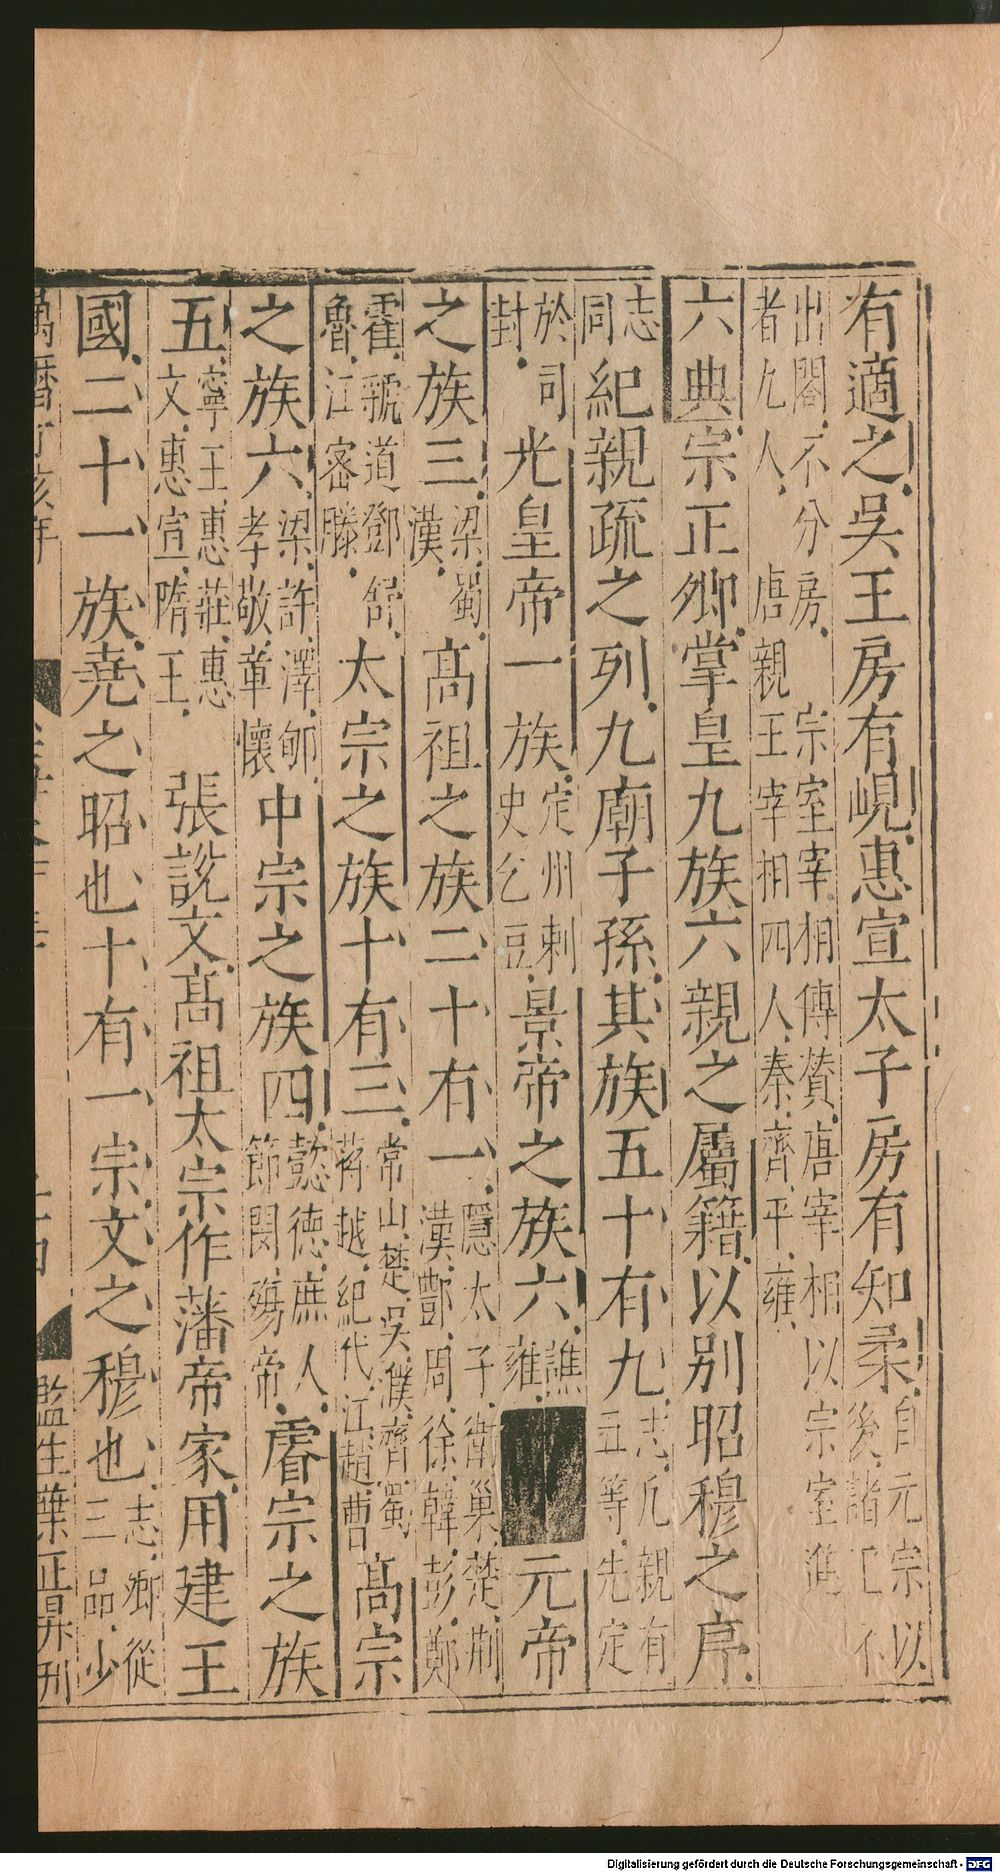 有適之吳王房有峴惠宣太子房有知柔自元宗以後諸王不
出閣不分房宗室宰相傳贊唐宰相以宗室進
者九人唐親王宰相四人秦齊平雍
六典宗正卿掌皇九族六親之屬籍以別昭穆之序
紀親疏之列九廟子孫其族五十有九志凡親有五等先定
志同於司封光皇帝一族定州刺史乞豆景帝之族六譙雍元帝
之族三梁蜀漢高祖之族二十有一隱太子衛巢楚荆漢酆周徐韓彭鄭
霍虢道鄧舒魯江密滕太宗之族十有三常山楚吳濮齊蜀蔣越紀代江趙曹高宗
之族六梁許澤郇孝敬章懷中宗之族四懿德庶人節閔殤帝睿宗之族
五寧王惠莊惠文惠宣隋王張說文高祖太宗作藩帝家用建王
國二十一族堯之昭也十有一宗文之穆也志卿從三品少
萬曆丁亥年
監生葉正昇刊
Digitalisierung gefördert durch die Deutsche Forschungsgemeinschaft - DFG